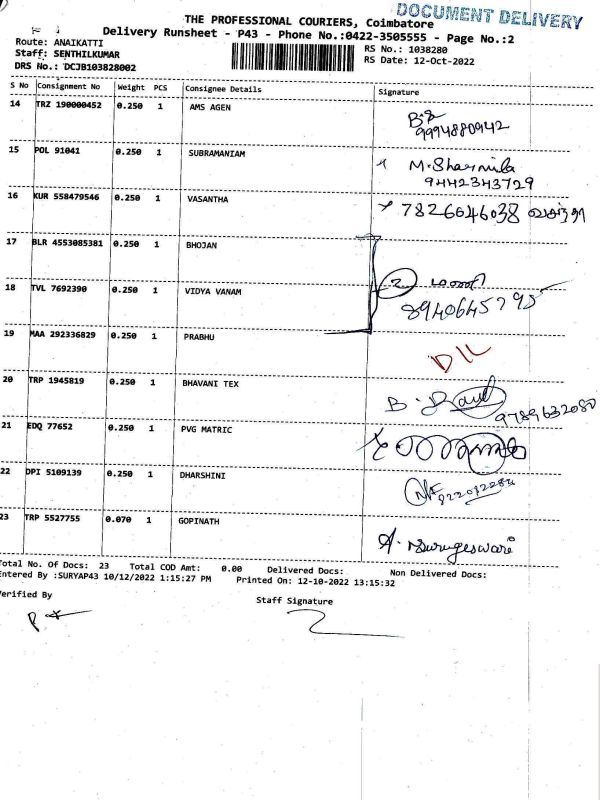 DOCUMENT DELIVERY
THE PROFESSIONAL COURIERS, Coimbatore
Delivery Runsheet - P43 - Phone No.:0422-3505555 - Page No.:2
Route: ANAIKATTI
RS No.: 1038280
Staff: SENTHILKUMAR
RS Date: 12-Oct-2022
DRS No.: DCJB103828002
S No Consignment No Weight PCS Consignee Details Signature
14 TRZ 190000452 0.250 1 AMS AGEN
9994880942
15 POL 91041 0.250 1 SUBRAMANIAM M. Sharmila
9442343729
16 KUR 558479546 0.250 1 VASANTHA 7826046038 வசந்தா
17 BLR 4553085381 0.250 1 BHOJAN
2
18 TVL 7692390 0.250 1 VIDYA VANAM
8940645795
19 MAA 292336829 0.250 1 PRABHU
D/L
20 TRP 1945819 0.250 1 BHAVANI TEX B.
9789632080
21 EDQ 77652 0.250 1 PVG MATRIC
22 DPI 5109139 0.250 1 DHARSHINI
23 TRP 5527755 0.070 1 GOPINATH
A. Murugeswari
Total No. Of Docs: 23 Total COD Amt: 0.00 Delivered Docs: Non Delivered Docs:
Entered By :SURYAP43 10/12/2022 1:15:27 PM Printed On: 12-10-2022 13:15:32
Verified By Staff Signature